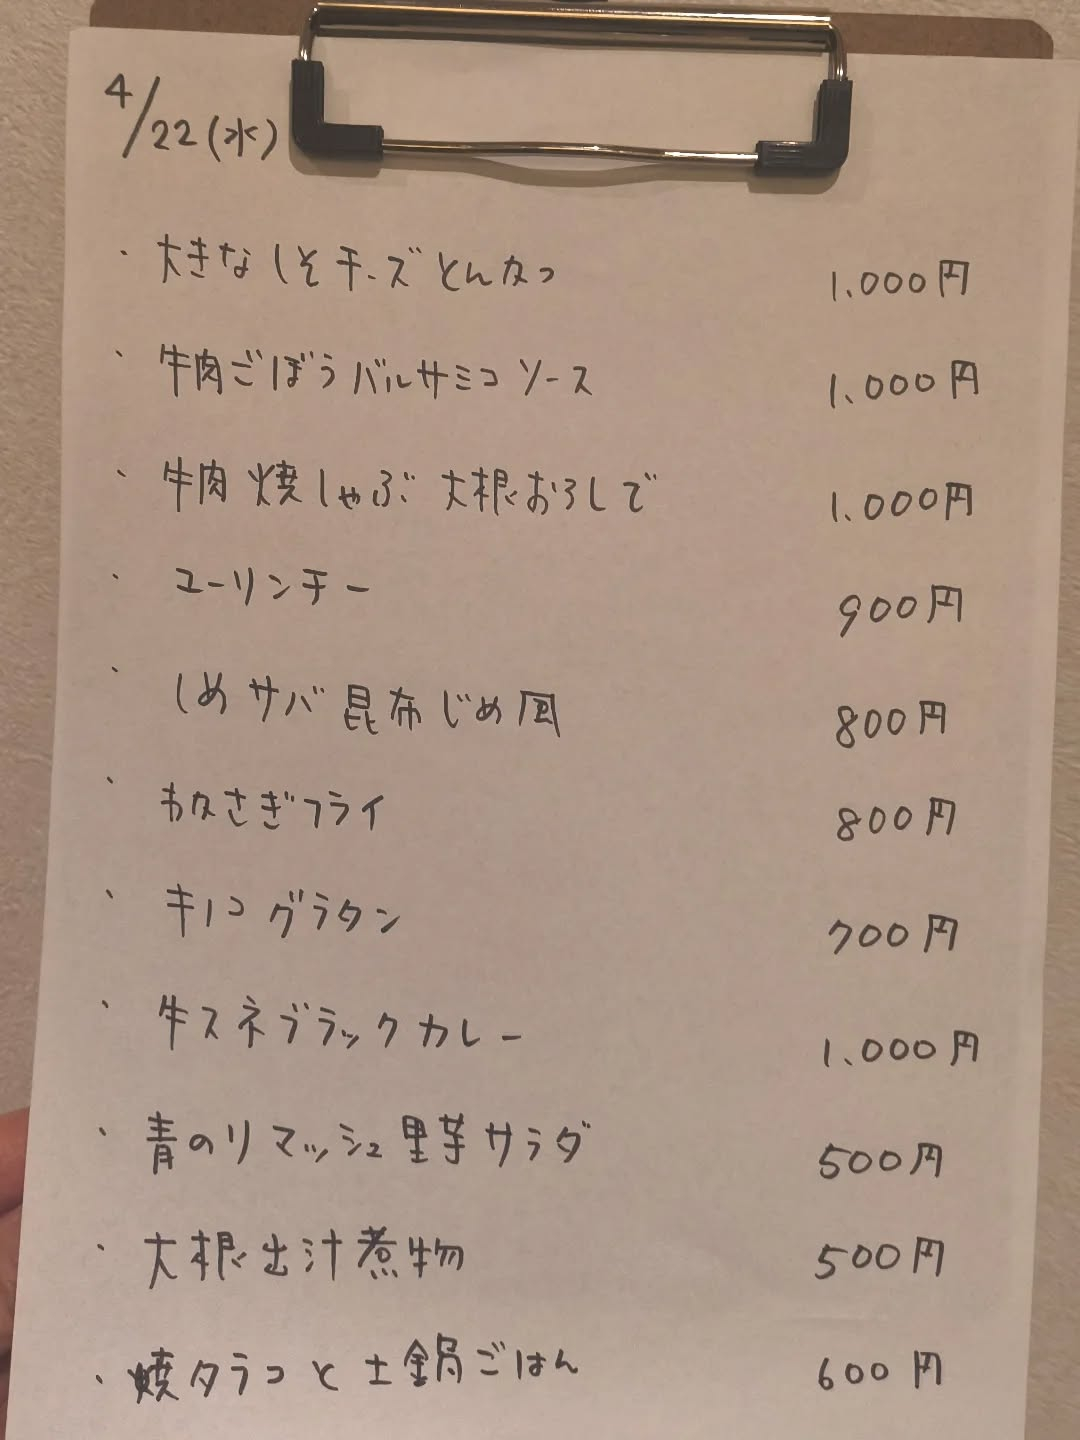 4/22(水)
・大きなしそチーズとんかつ 1,000円
・牛肉ごぼうバルサミコソース 1,000円
・牛肉焼しゃぶ 大根おろしで 1,000円
・ユーリンチー 900円
・しめサバ昆布じめ風 800円
・わかさぎフライ 800円
・キノコグラタン 700円
・牛スネブラックカレー 1,000円
・青のりマッシュ里芋サラダ 500円
・大根出汁煮物 500円
・焼タラコと土鍋ごはん 600円